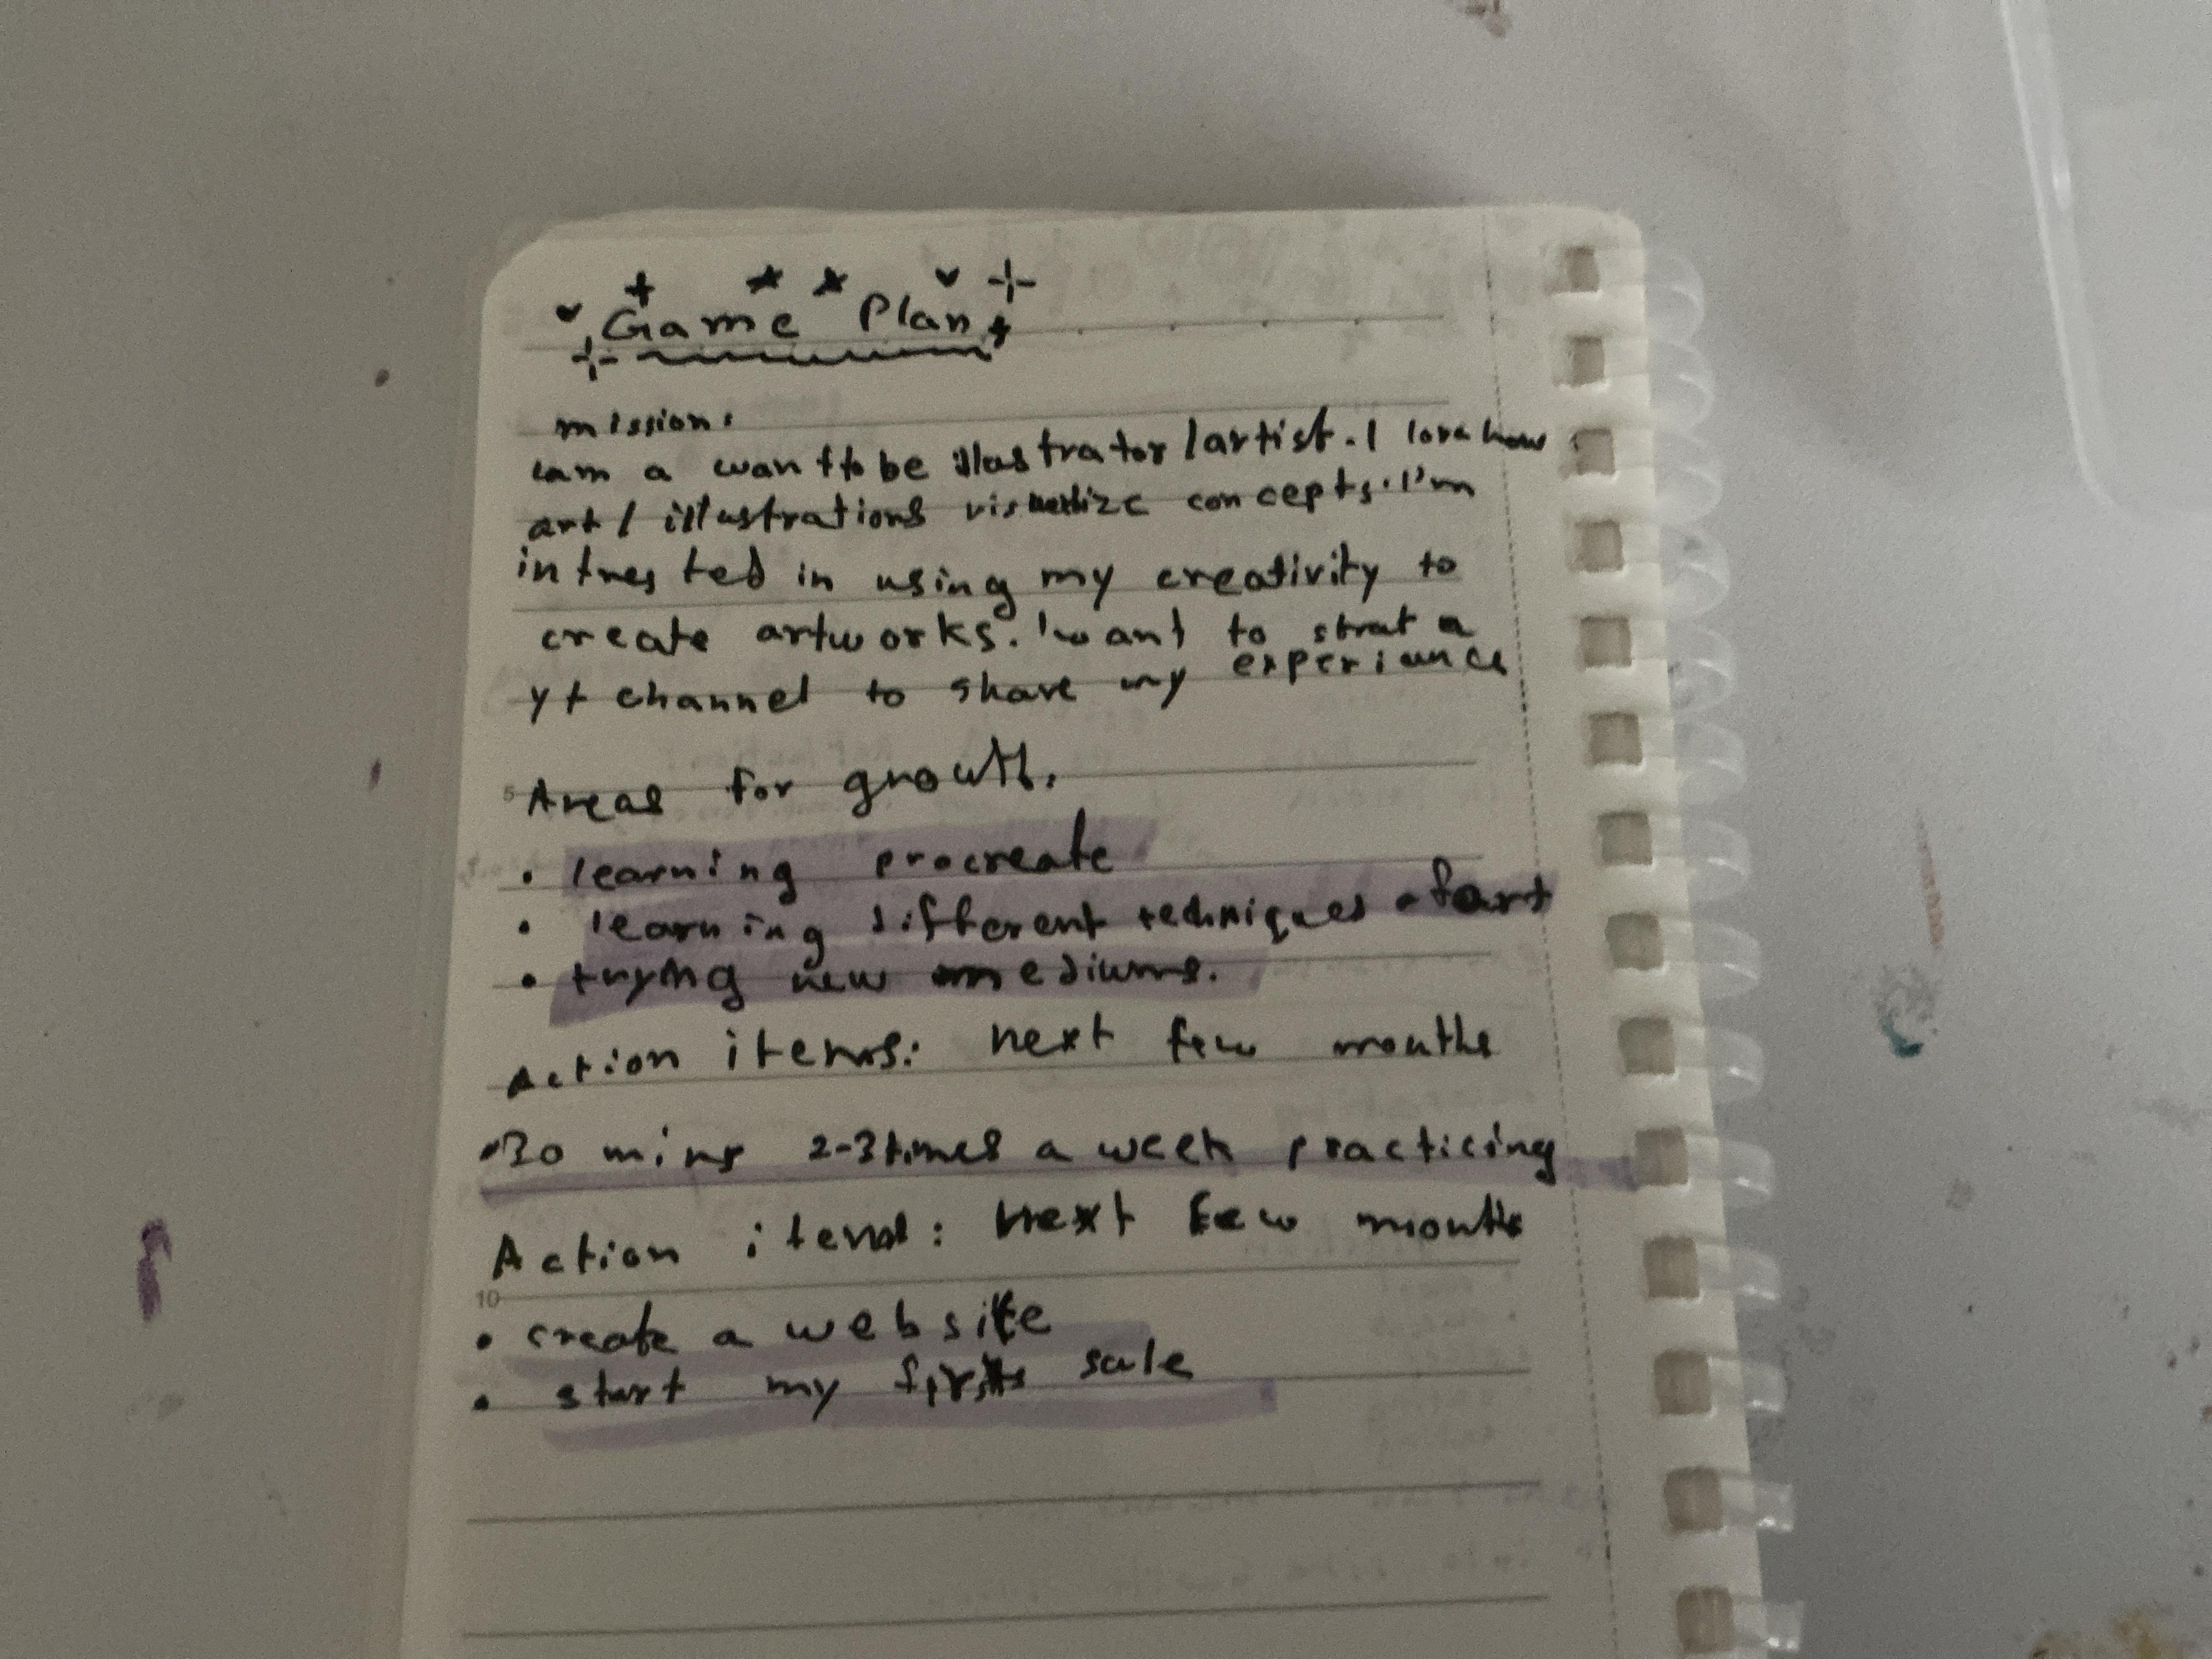 Game Plan
mission:
iam a want to be illustrator/artist. I love how
art / illustrations visualize concepts. I'm
intrested in using my creativity to
create artworks. I want to strat a
yt channel to share my experiance
Areas for growth.
5
• learning procreate
• learning different techniques of art
• trying new mediums.
Action items: next few months
• 30 mins 2-3 times a week practicing
Action items: Next few months
10
• create a website
• start my first sale